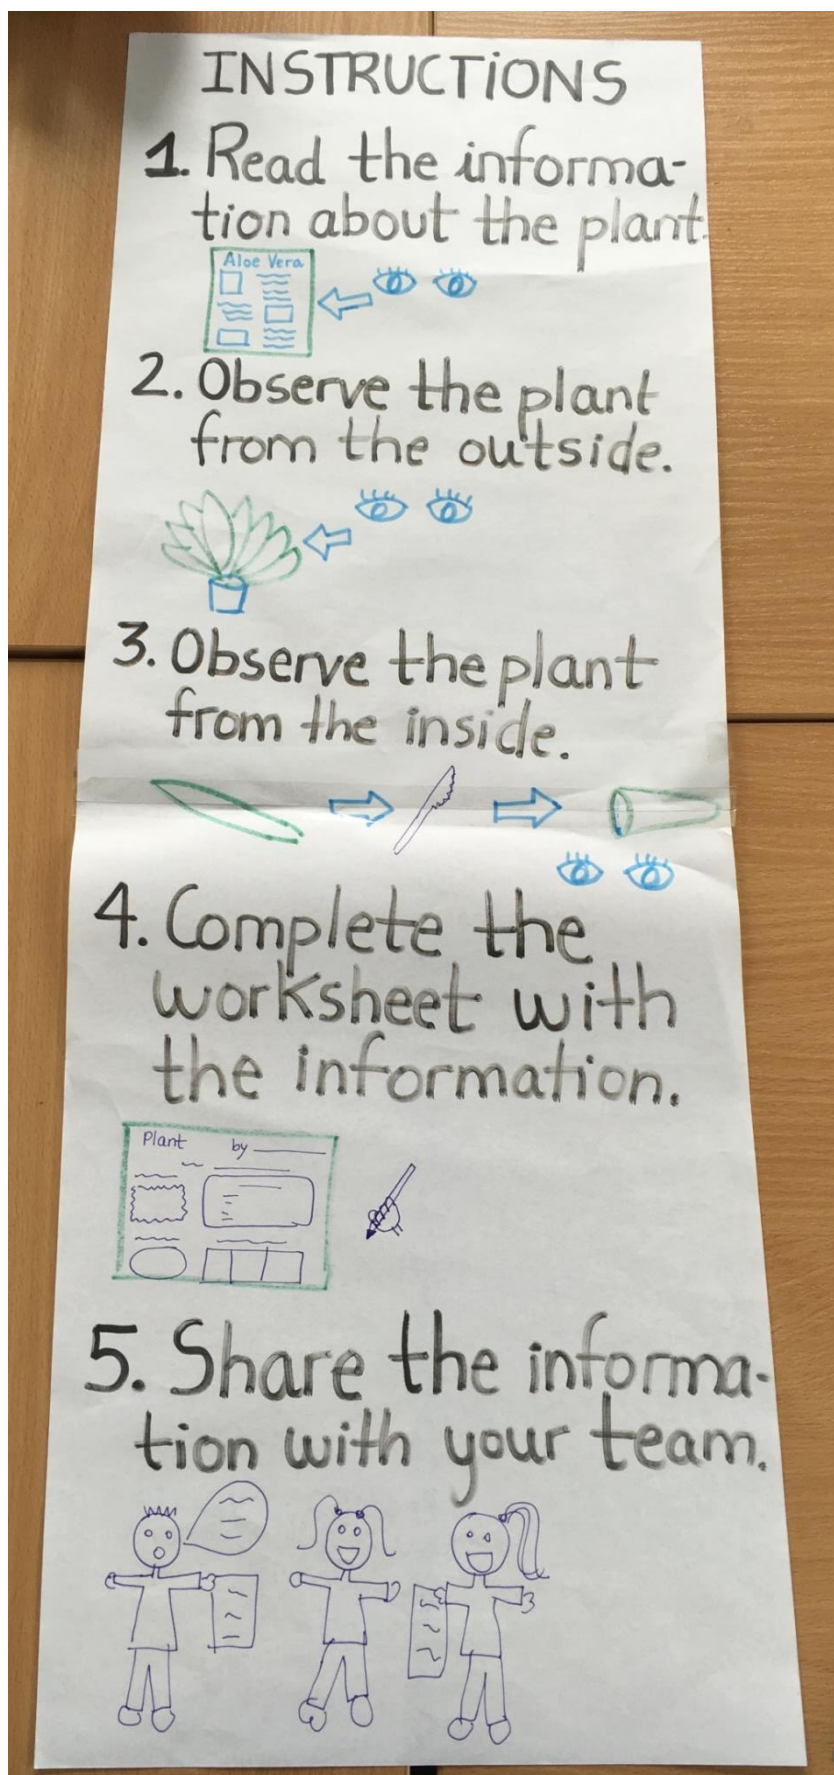 INSTRUCTIONS
1. Read the informa-
tion about the plant.
Aloe Vera
2. Observe the plant
from the outside.
3. Observe the plant
from the inside.
4. Complete the
worksheet with
the information.
Plant by
5. Share the informa-
tion with your team.